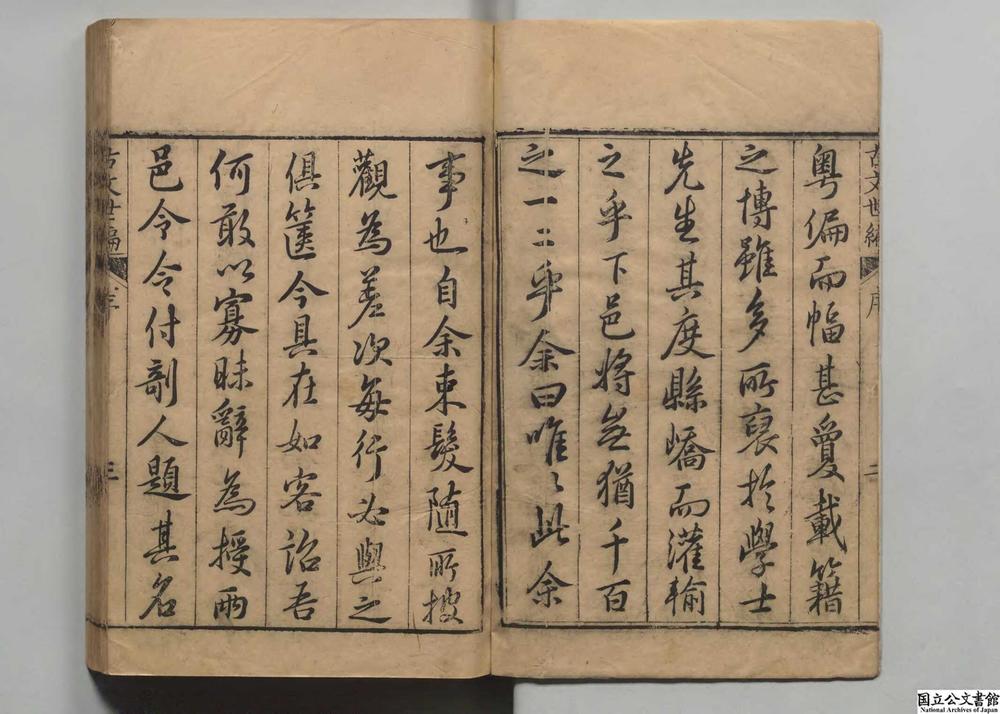 古文世編 序 二
粵偏而幅甚憂載籍
之博雖多所裒於學士
先生其度縣嶠而灌輸
之乎下邑將無猶千百
之一二乎余曰唯〻此余
事也自余束髮隨所披
觀為差次每行必與之
俱篋今具在如客詒吾
何敢以寡昧辭為授兩
邑令令付剞人題其名
古文世編 序 三
国立公文書館
National Archives of Japan